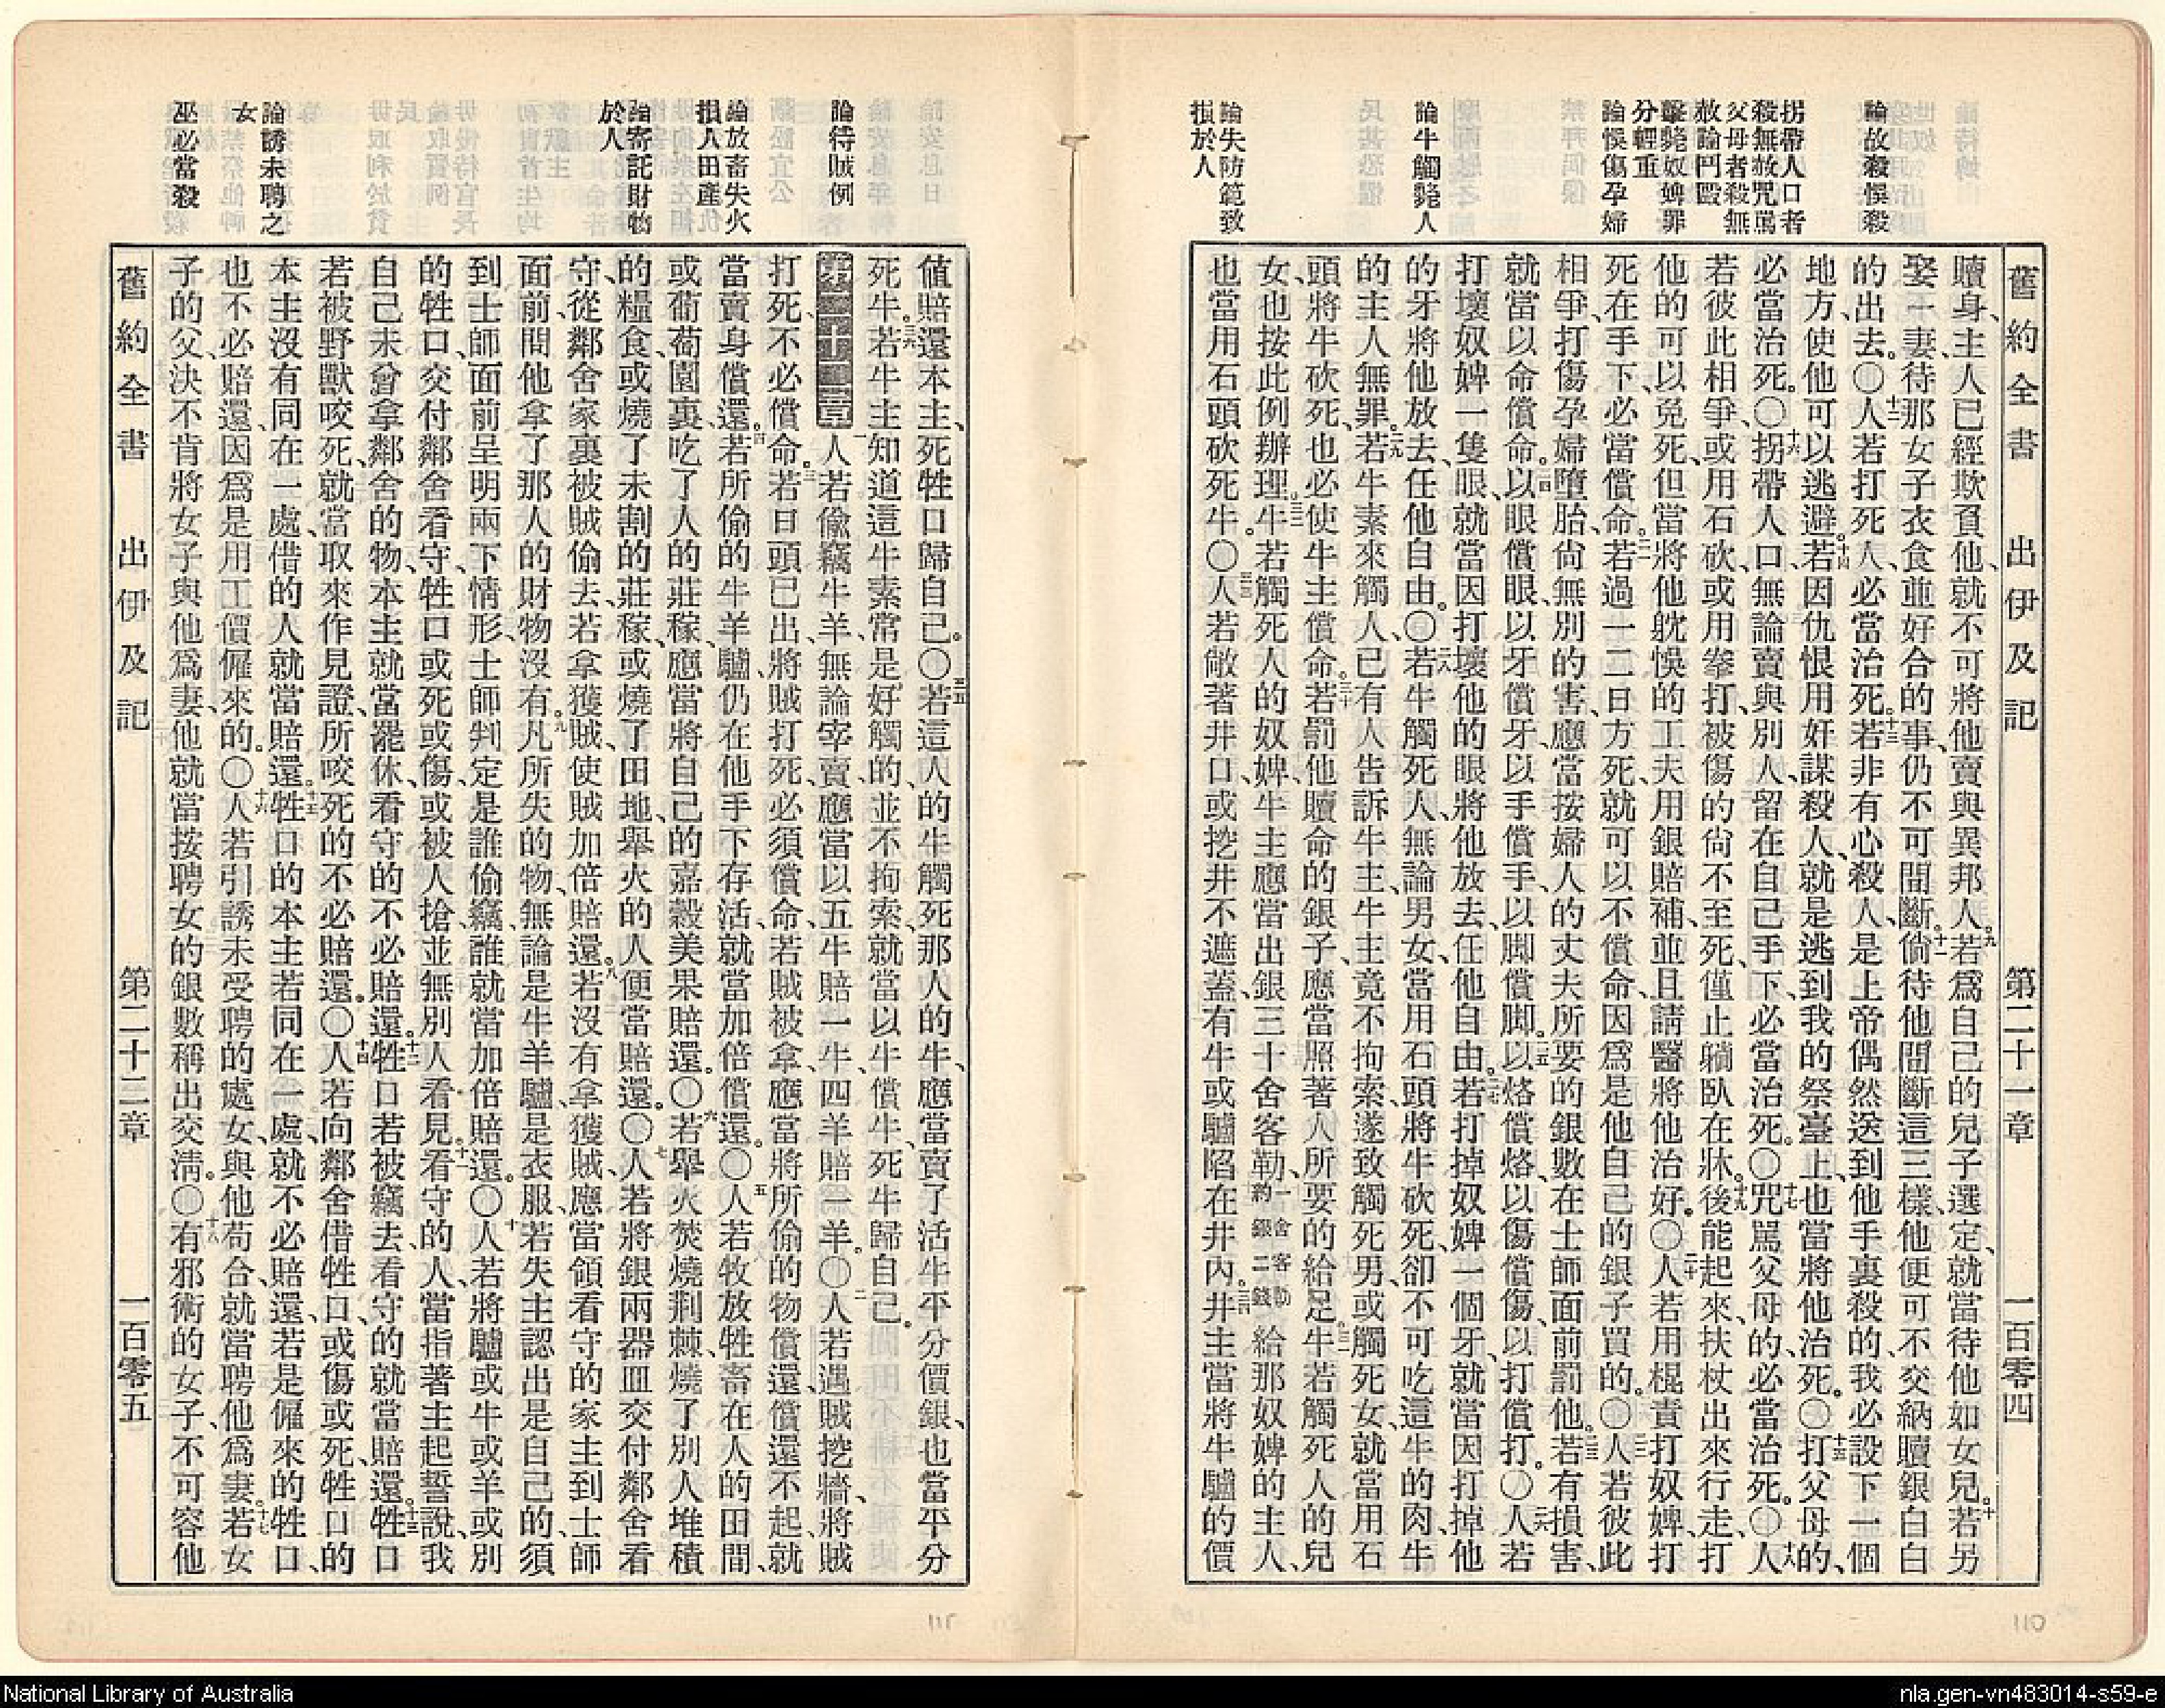 論故殺悞殺
拐帶人口者
殺無赦咒駡
父母者殺無
赦論鬥毆
擊斃奴婢罪
分輕重
論悞傷孕婦
論牛觸斃人
論失防範致
損於人
舊約全書 出伊及記 第二十一章 一百零四
贖身、主人已經欺負他、就不可將他賣與異邦人。九若爲自己的兒子選定、就當待他如女兒。十若另
娶一妻、待那女子衣食並好合的事、仍不可間斷。十一倘待他間斷這三樣、他便可不交納贖銀白白
的出去。〇十二人若打死人、必當治死。十三若非有心殺人、是上帝偶然送到他手裏殺的、我必設下一個
地方、使他可以逃避。十四若因仇恨用奸謀殺人、就是逃到我的祭臺上、也當將他治死。〇十五打父母的、
必當治死。〇十六拐帶人口、無論賣與別人、留在自己手下、必當治死。〇十七咒駡父母的、必當治死。〇十八人
若彼此相爭、或用石砍、或用拳打、被傷的尙不至死、僅止躺臥在牀。十九後能起來、扶杖出來行走、打
他的可以免死、但當將他躭悞的工夫用銀賠補、並且請醫將他治好。〇二十人若用棍責打奴婢、打
死在手下、必當償命。二一若過一二日方死、就可以不償命、因爲是他自己的銀子買的。〇二二人若彼此
相爭、打傷孕婦墮胎、尙無別的害、應當按婦人的丈夫所要的銀數在士師面前罰他。二三若有損害、
就當以命償命。二四以眼償眼、以牙償牙、以手償手、以脚償脚。二五以烙償烙、以傷償傷、以打償打。〇二六人若
打壞奴婢一隻眼、就當因打壞他的眼、將他放去、任他自由。二七若打掉奴婢一個牙、就當因打掉他
的牙將他放去、任他自由。〇二八若牛觸死人、無論男女、當用石頭將牛砍死、卻不可吃這牛的肉、牛
的主人無罪。二九若牛素來觸人、已有人告訴牛主、牛主竟不拘索、遂致觸死男、或觸死女、就當用石
頭將牛砍死、也必使牛主償命。三十若罰他贖命的銀子、應當照著人所要的給足。三一牛若觸死人的兒
女、也按此例辦理。三二牛若觸死人的奴婢、牛主應當出銀三十舍客勒、一舍客勒約銀二錢給那奴婢的主人、
也當用石頭砍死牛。〇三三人若敞著井口、或挖井不遮蓋、有牛或驢陷在井內。三四井主當將牛驢的價
論待賊例
論放畜失火
損人田產
論寄託財物
於人
論誘未聘之
女
巫必當殺
値賠還本主、死牲口歸自己。〇三五若這人的牛觸死那人的牛、應當賣了活牛平分價銀、也當平分
死牛。三六若牛主知道這牛素常是好觸的、並不拘索、就當以牛償牛、死牛歸自己。
第二十二章 一人若偸竊牛羊、無論宰賣、應當以五牛賠一牛、四羊賠一羊。〇二人若遇賊挖牆、將賊
打死、不必償命。三若日頭已出、將賊打死、必須償命、若賊被拿、應當將所偷的物償還、償還不起、就
當賣身償還。四若所偷的牛羊驢仍在他手下存活、就當加倍償還。〇五人若牧放牲畜在人的田間、
或葡萄園裏、吃了人的莊稼、應當將自己的嘉穀美果賠還。〇六若舉火焚燒荆棘、燒了別人堆積
的糧食、或燒了未割的莊稼、或燒了田地、舉火的人便當賠還。〇七人若將銀兩器皿交付鄰舍看
守、從鄰舍家裏被賊偷去、若拿獲賊、使賊加倍賠還。八若沒有拿獲賊、應當領看守的家主到士師
面前、問他拿了那人的財物沒有。九凡所失的物、無論是牛羊驢、是衣服、若失主認出是自己的、須
到士師面前呈明兩下情形、士師判定是誰偷竊、誰就當加倍賠還。〇十人若將驢、或牛、或羊、或別
的牲口、交付鄰舍看守、牲口或死、或傷、或被人搶、並無別人看見。十一看守的人、當指著主起誓說、我
自己未曾拿鄰舍的物、本主就當罷休、看守的不必賠還。十二牲口若被竊去、看守的就當賠還。十三牲口
若被野獸咬死、就當取來作見證、所咬死的不必賠還。〇十四人若向鄰舍借牲口、或傷或死、牲口的
本主沒有同在一處、借的人就當賠還。十五牲口的本主若同在一處、就不必賠還、若是僱來的牲口、
也不必賠還、因爲是用工價僱來的。〇十六人若引誘未受聘的處女、與他苟合、就當聘他爲妻。十七若女
子的父、決不肯將女子與他爲妻、他就當按聘女的銀數稱出交淸。〇十八有邪術的女子、不可容他
舊約全書 出伊及記 第二十二章 一百零五
110
111
National Library of Australia
nla.gen-vn483014-s59-e